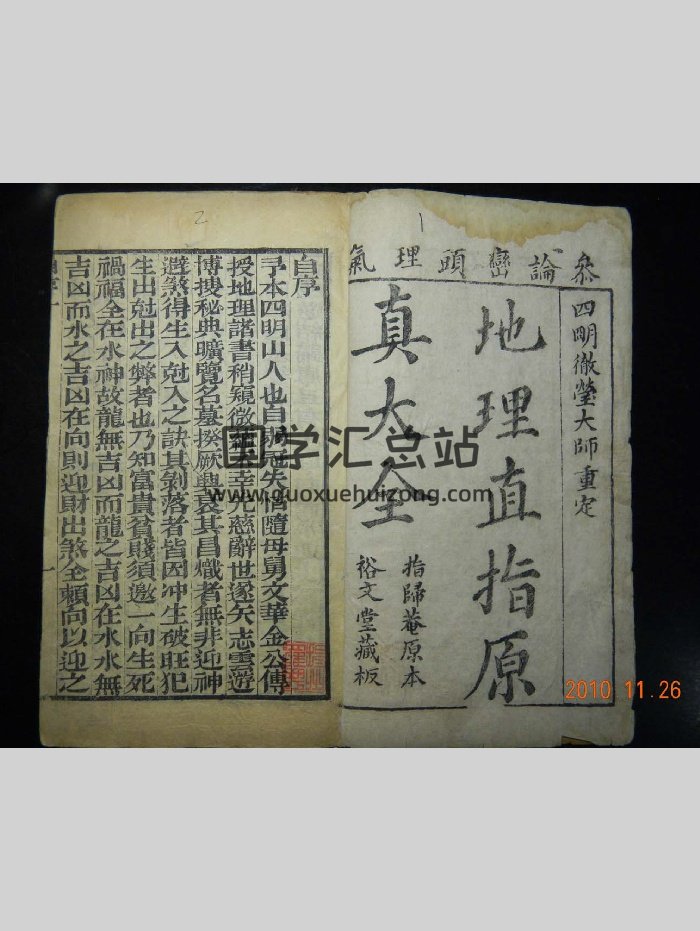 參論巒頭理氣
四明徹瑩大師重定
地理直指原
真大全
指歸菴原本
裕文堂藏板
1
2
自序
予本四明山人也自弱冠失怙隨母舅文華金公傳
授地理諸書稍窺微
幸先慈辭世遂矢志雲遊
博搜秘典曠覽名墓揆厥興衰其昌熾者無非迎神
避煞得生入尅入之訣其剝落者皆因冲生破旺犯
生出尅出之弊者也乃知富貴貧賤須邀一向生死
禍福全在水神故龍無吉凶而龍之吉凶在水水無
吉凶而水之吉凶在向則迎財出煞全賴向以迎之
一
国学汇总站
www.guoxuehuizong.com
2010 11.26